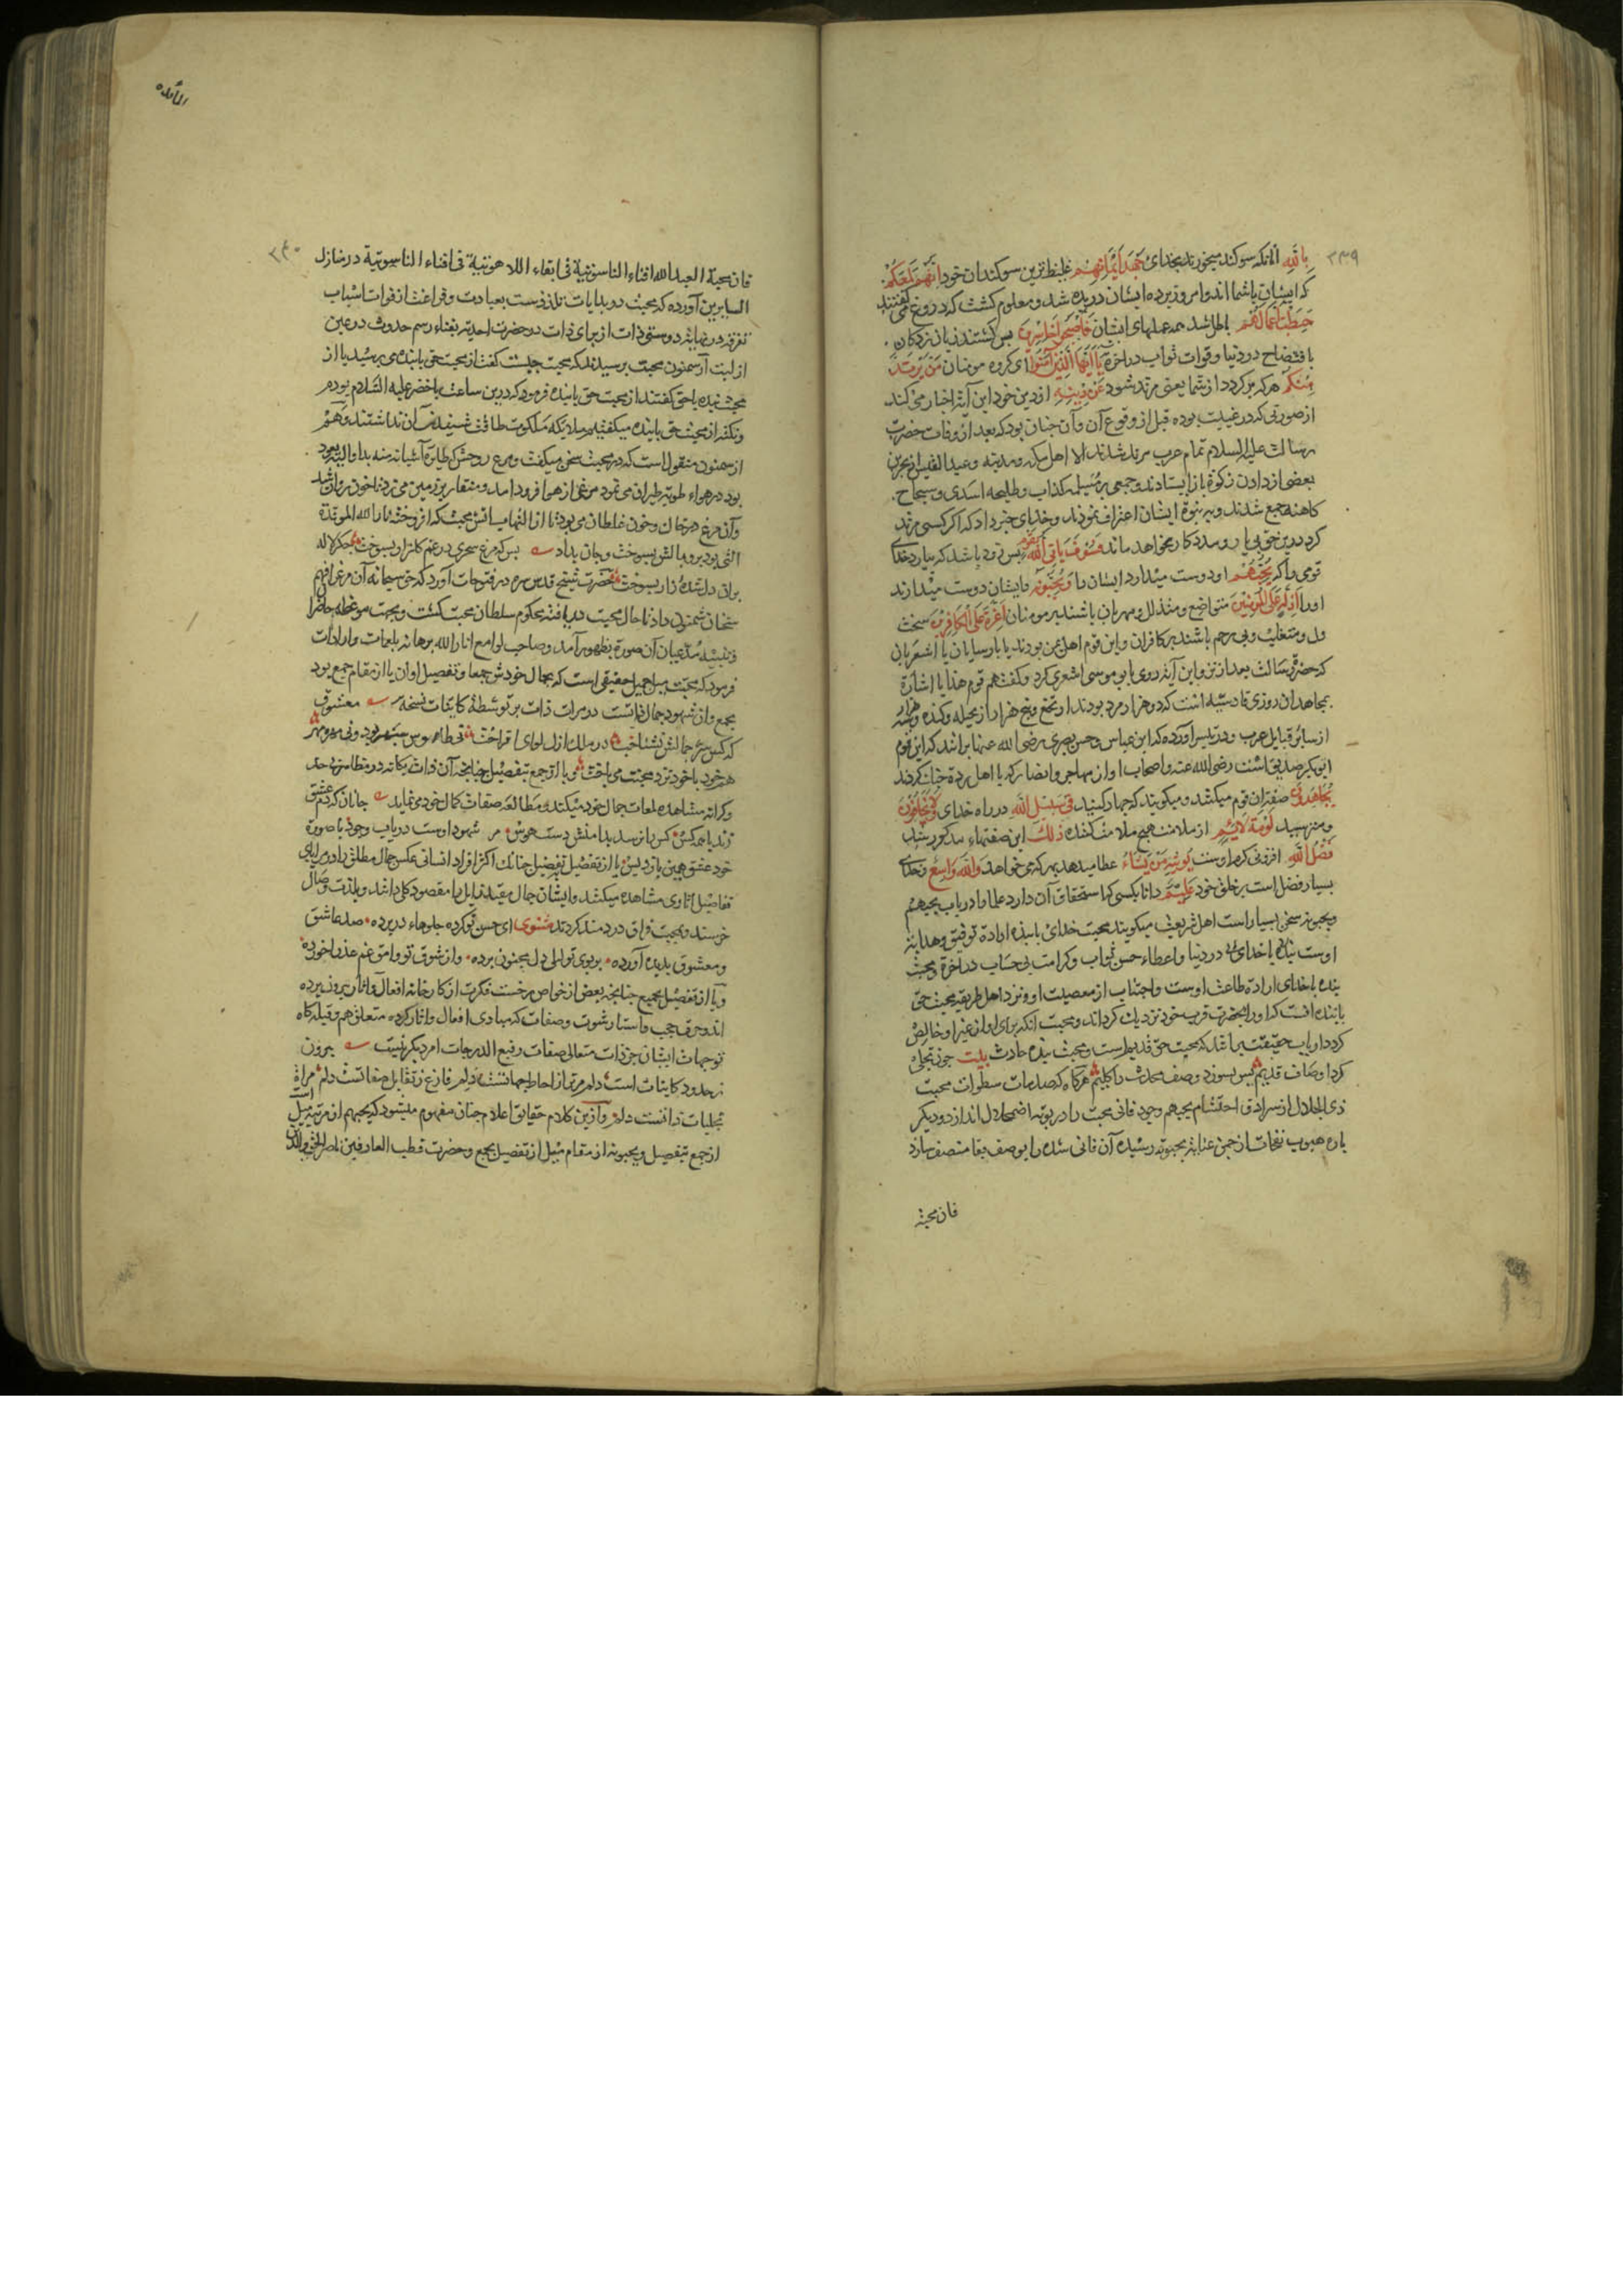 ۲۳۹
بِاللّهِ آنانکه سوکند میخورند بخدای جَهْدَ اَیْمَانِهِمْ غلیظ ترین سوکندان خود اِنَّهُمْ لَمَعَکُمْ
که ایشان باشما اند و امروز پرده ایشان دریده شد و معلوم کشت که دروغ می کفتند
حَبِطَتْ اَعْمَالُهُمْ باطل شد همه عملهای ایشان فَاَصْبَحُوا خَاسِرِینَ پس کشتند زیان زدکان
بافتضاح در دنیا و فوات ثواب در آخرة یَا اَیُّهَا الَّذِینَ آمَنُوا ای کروه مومنان مَنْ یَرْتَدَّ
مِنْکُمْ هرکه برکردد از شما یعنی مرتد شود عَنْ دِینِهِ از دین خود این آیة اخبار می کند
از صورتی که در غیبت بوده قبل از وقوع آن و آن چنان بود که بعد از وفات حضرت
رسالت علیه السلام تمام عرب مرتد شدند الا اهل مکه و مدینه و عبد القیس از بحرین
بعضی از دادن زکوة باز ایستادند و جمعی بر مسیلمه کذاب و طلیحه اسدی و سجاح
کاهنه جمع شدند و به نبوة ایشان اعتراف نمودند و خدای خبر داد که اکر کسی مرتد
کردد دین حق بی یار و مدد کار نخواهد ماند فَسَوْفَ یَاْتِی اللّهُ بِقَوْمٍ پس زود باشد که بیارد خدای
قومی را که یُحِبُّهُمْ او دوست میدارد ایشان را وَیُحِبُّونَهُ و ایشان دوست میدارند
او را اَذِلَّةٍ عَلَی الْمُؤْمِنِینَ متواضع و متذلل و مهربان باشند بر مومنان اَعِزَّةٍ عَلَی الْکَافِرِینَ سخت
دل و متغلب و بی رحم باشند بر کافران و این قوم اهل یمن بودند یا پارسایان یا اشعریان
که حضرة رسالت بعد از نزول این آیة روی بابو موسی اشعری کرد و کفت هم قوم هذا یا اشارة
بمجاهدان روزی قادسیه است که دو هزار مرد بودند از نخع و پنج هزار از بجیله و کنده و سه هزار
از سایر قبایل عرب و در تیسیر آورده که ابن عباس و حسن بصری رضی الله عنهما برانند که این قوم
ابوبکر صدیق است رضی الله عنه و اصحاب او از مهاجر و انصار که با اهل ردة جنک کردند
یُجَاهِدُونَ صفة آن قوم میکند و میکوید که جهاد کنند فِی سَبِیلِ اللّهِ در راه خدای وَلَا یَخَافُونَ
و نترسند لَوْمَةَ لَائِمٍ از ملامت هیچ ملامت کننده ذَلِکَ این صفتهاء مذکور شده
فَضْلُ اللّهِ افزونی کرم اوست یُؤْتِیهِ مَنْ یَشَاءُ عطا میدهد بهر که می خواهد وَاللّهُ وَاسِعٌ و خدای
بسیار فضل است بر خلق خود عَلِیمٌ دانا بکسی که استحقاق آن دارد علما را در باب یحبهم
و یحبونه سخن بسیار است اهل شریعت میکویند محبت خدای با بنده ارادة توفیق و هدایة
اوست بنده را در دنیا و اعطاء حسن ثواب و کرامت بی حساب در آخرة و محبت
بنده با خدای ارادة طاعت اوست و اجتناب از معصیت او و نزد اهل طریقه محبت حق
با بنده آنست که او را بحضرت قرب خود نزدیک کرداند و محبت آنکه برای او از غیر او خالص
کردد ارباب حقیقت برانند که محبت حق قدیم است و محبت بنده حادث بیت چون تجلی
کرد اوصاف قدیم پس بسوزد وصف محدث را کلیم هرکاه که صدمات سطوات محبت
ذی الجلال از سرادق احتشام یحبهم وجود فانی محبت را در بوته اضمحلال اندازد و دیکر
باره هبوب نفحات از چمن عنایة یحبونه رسیده آن فانی شده را بوصف بقا متصف سازد
فان محبة
المائده
۲۴۰
فان محبة العبد لله افناء الناسوتیة فی ابقاء اللاهوتیة فی افناء الناسوتیة در منازل
السایرین آورده که محبت در بدایات تلذذیست بعبادت و فراغت از فوات اسباب
تفرقه در نهایة دوستی ذات از برای ذات در حضرت احدیة بفناء رسم حدوث در عین
ازلیت از سمنون محبت پرسیدند که محبت چیست کفت از محبت حق با بنده می پرسید یا از
محبت بنده با حق کفتند از محبت حق با بنده فرمود که درین ساعت با خضر علیه السلام بودم
و نکته از محبت حق با بنده میکفتیم ملایکه ملکوت طاقت شنیدن آن نداشتند و هم
از سمنون منقول است که در محبت سخن میکفت و مرغ روحش که طایر آشیانه منه بدا و الیه یعود
بود در هواء طویه طیران می نمود مرغی از هوا فرود آمد و منقار بر زمین می زد تا خون روان شد
و آن مرغ در خاک و خون غلطان می بود تا از التهاب آتش محبت که افروخته نار الله الموقدة
التی بود پر و بالش بسوخت و جان بداد بس که مرغ سحری در غم کلزار بسوخت جکر لاله
بران دلشدهٔ زار بسوخت حضرت شیخ قدس سره در فتوحات آورد که حق سبحانه آن مرغ را فهم
سخنان سمنون داد تا حال محبت دریافته محکوم سلطان محبت کشت و بجهت موعظه حاضران
و تنبیه مدعیان آن صورة بظهور آمد و صاحب لوامع انار الله برهانه بلمعات و ارادات
فرمود که محبت میل جمیل حقیقی است که بجمال خودش جمعا و تفصیل او آن یا از مقام جمع بود
بجمع و آن شهود جمال ذاتست در مرات ذات بی توسط کاینات نسخه معشوق
که کس سر جمالش نشناخت در ملک ازل لوای افراخت
هم خود با خود نرد محبت می باخت و یا از جمع بتفصیل چنانچه آن ذات یکانه در مظاهر بی حد
و کرانه مشاهده لمعات جمال خود میکند و مطالعه صفات کمال خود می نماید جانان که دم عشق
زند با همه کس کس را نرسد بدامنش دست هوس مر شهود اوست در باب وجود با صورة
خود عشق همین بازد و بس یا از تفصیل بتفصیل چنانک اکثر افراد انسانی عکس جمال مطلق را در مرایای
تفاصیل آثار وی مشاهده میکنند و ایشان جمال مقید زایل را مقصود کلی دانند و بلذت وصال
خرسند و بمحبت فراق دردمند کردند مثنوی ای حسن تو کرده جلوهاء در پرده صد عاشق
و معشوق پدید آورده بر بوی تو لیلی دل مجنون برده و از شوق تو وامق غم عذرا خورده
و یا از تفصیل بجمیع چنانچه بعضی از خواص رخست فکرت از کارخانه افعال و اثار بیرون برده
اند و خرق حجب و استار شوت و صفات که مبادی افعال و اثار کرده متعلق هم و قبله کاه
توجهات ایشان جز ذات متعالی صفات رفیع الدرجات امر دیکر نیست بیرون
ز حدود کاینات است دلم برتر از احاطه جهاتست دلم فارغ ز تقابل صفاتست دلم مراة
تجلیات ذاتست دلم و از این کلام حقایق اعلام چنان مفهوم میشود که یحبهم از مرتبه میل است
از جمع بتفصیل و یحبونه از مقام میل از تفصیل بجمع و حضرت قطب العارفین ناصر الحق والدین